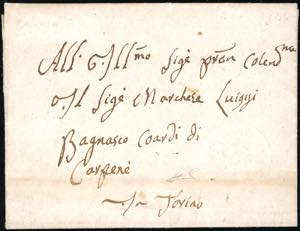 All' Ill.mo Sig.e pron Colend.mo
Il Sig.e Marchese Luiggi
Bagnasco Coardi di
Carpené
Torino